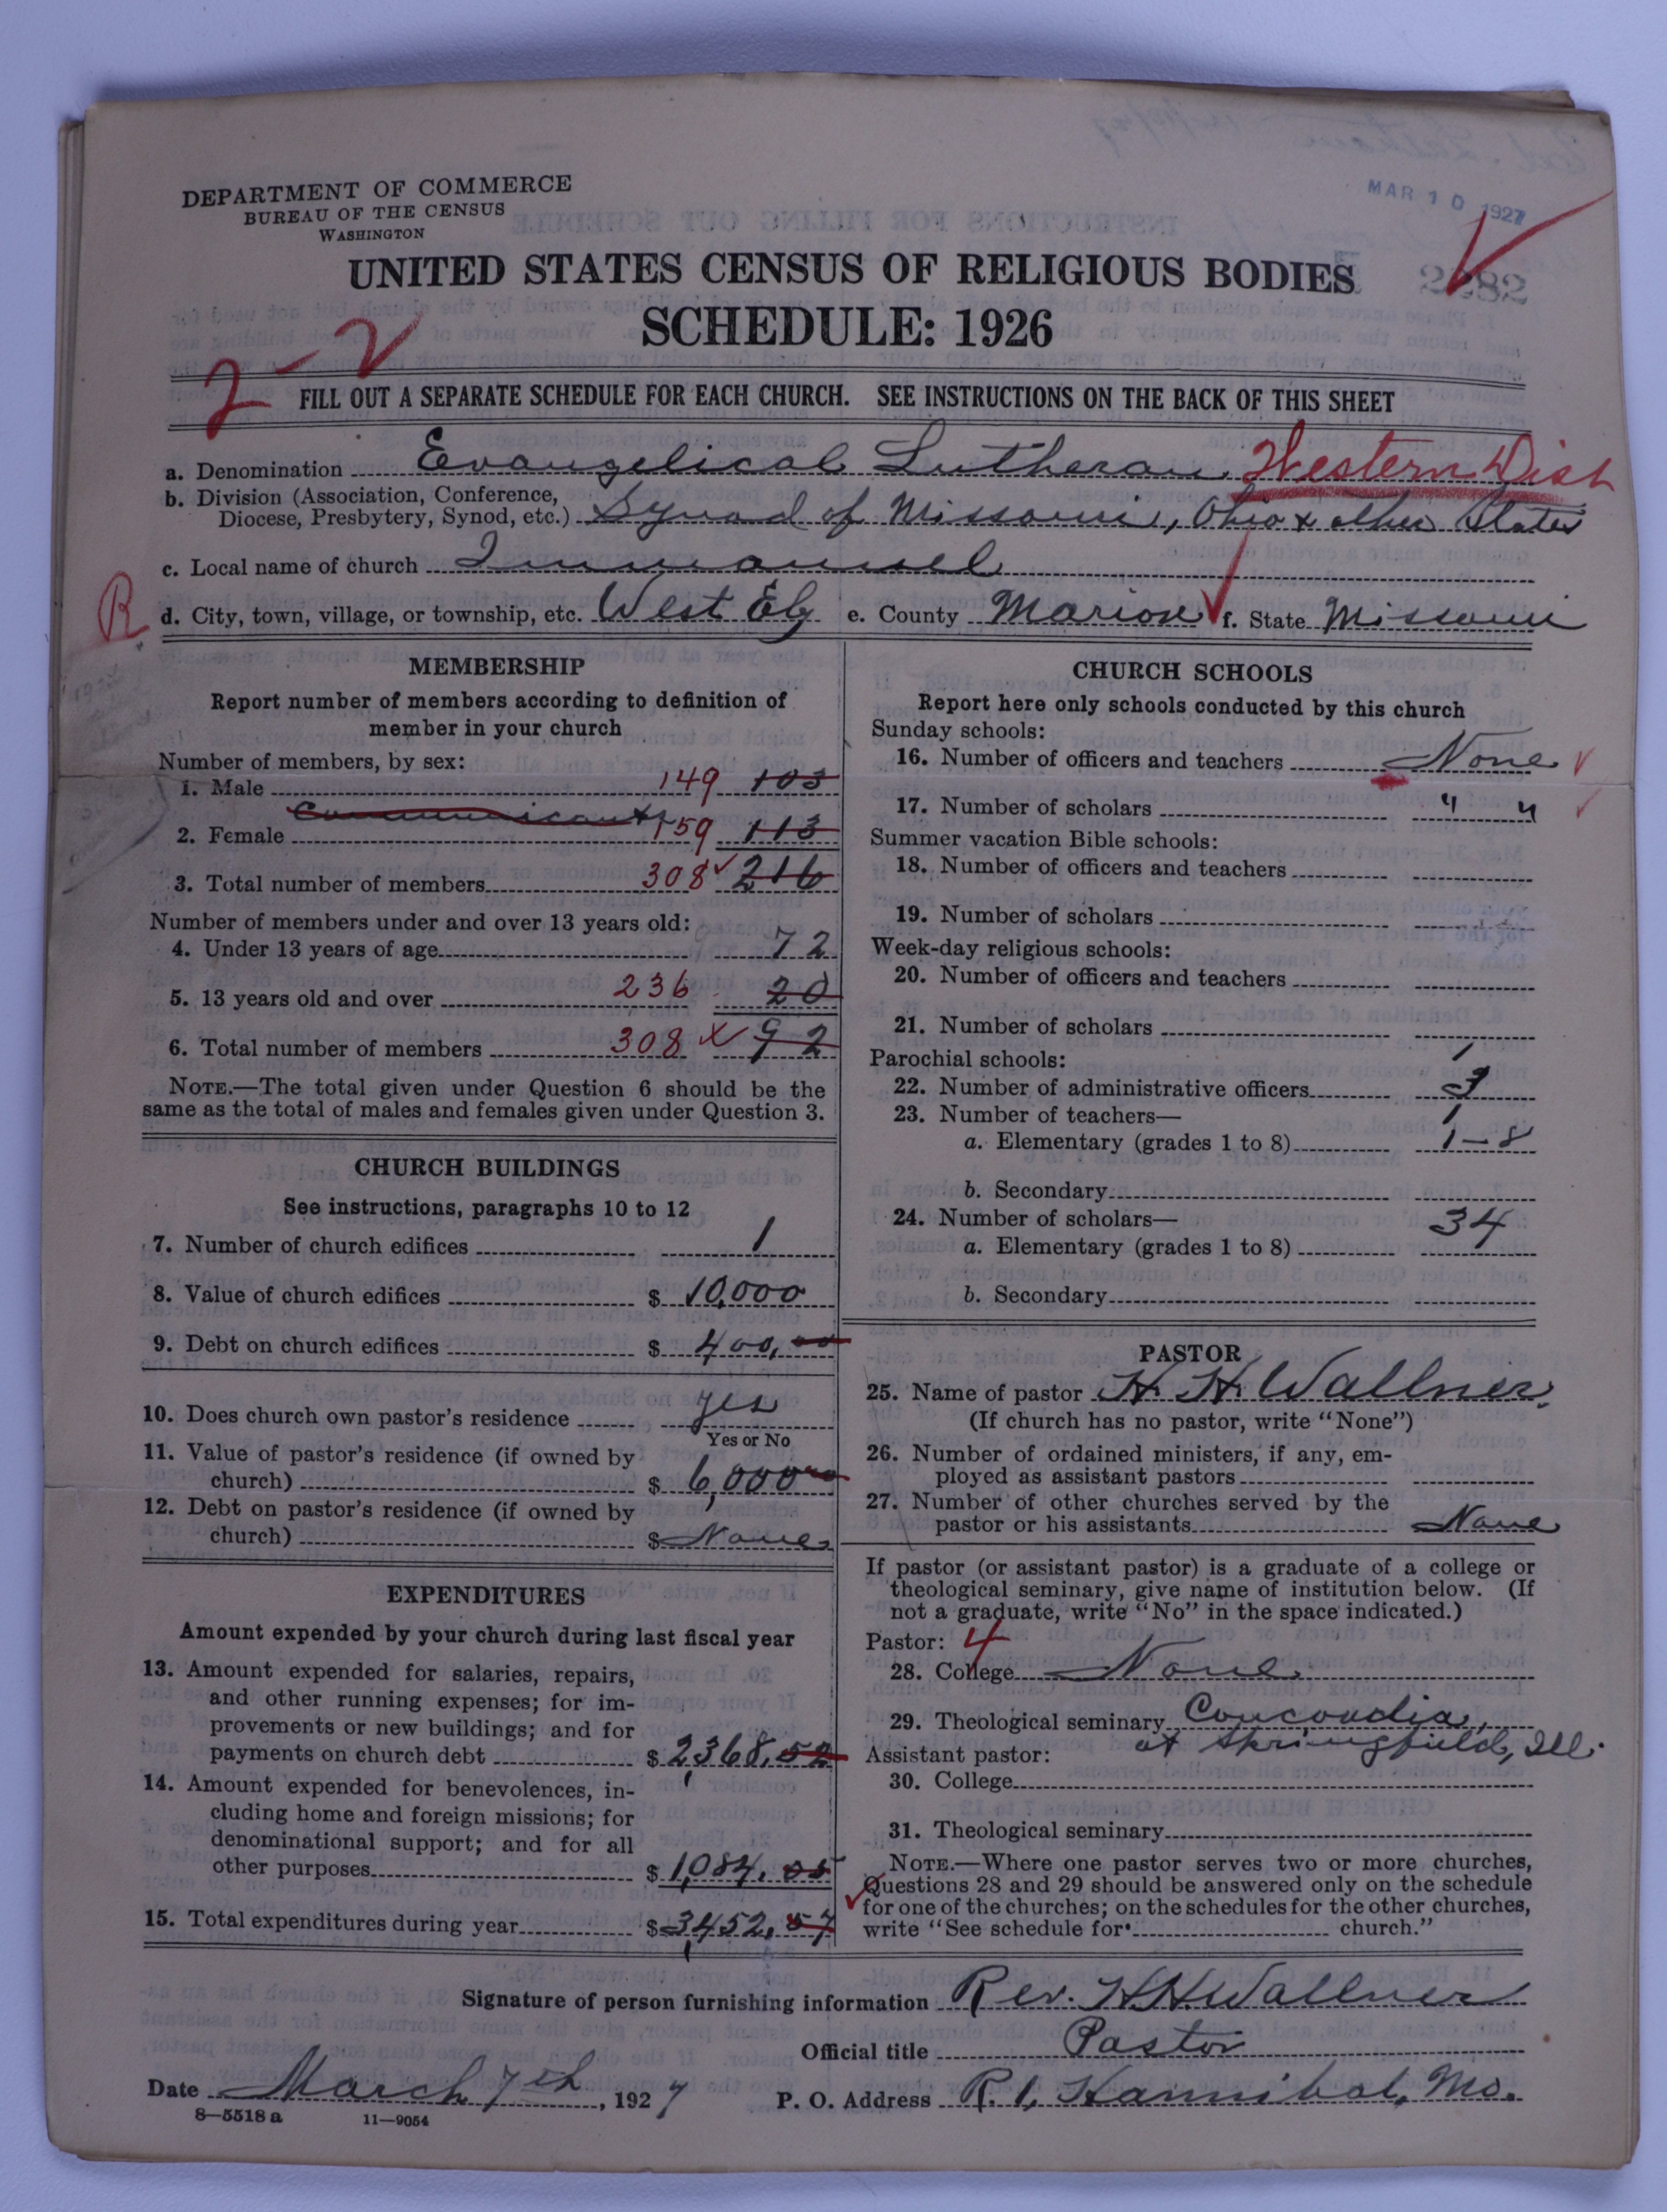 MAR 10 1927
DEPARTMENT OF COMMERCE
BUREAU OF THE CENSUS
WASHINGTON
UNITED STATES CENSUS OF RELIGIOUS BODIES
SCHEDULE: 1926
2-2
FILL OUT A SEPARATE SCHEDULE FOR EACH CHURCH. SEE INSTRUCTIONS ON THE BACK OF THIS SHEET
a. Denomination Evangelical Lutheran Western Dist
b. Division (Association, Conference,
Diocese, Presbytery, Synod, etc.) Synod of Missouri, Ohio & other States
c. Local name of church Immanuel
R d. City, town, village, or township, etc. West Ely e. County Marion f. State Missouri
MEMBERSHIP
Report number of members according to definition of
member in your church
Number of members, by sex:
1. Male 149 103
Communicants
2. Female 159 113
3. Total number of members 308 216
Number of members under and over 13 years old:
4. Under 13 years of age 72
5. 13 years old and over 236 20
6. Total number of members 308 92
NOTE.—The total given under Question 6 should be the
same as the total of males and females given under Question 3.
CHURCH BUILDINGS
See instructions, paragraphs 10 to 12
7. Number of church edifices 1
8. Value of church edifices $ 10,000
9. Debt on church edifices $ 400,00
10. Does church own pastor's residence yes
Yes or No
11. Value of pastor's residence (if owned by
church) $ 6,000
12. Debt on pastor's residence (if owned by
church) $ None
EXPENDITURES
Amount expended by your church during last fiscal year
13. Amount expended for salaries, repairs,
and other running expenses; for im-
provements or new buildings; and for
payments on church debt $ 2,368.52
14. Amount expended for benevolences, in-
cluding home and foreign missions; for
denominational support; and for all
other purposes $ 1,084.05
15. Total expenditures during year $ 3,452.57
CHURCH SCHOOLS
Report here only schools conducted by this church
Sunday schools:
16. Number of officers and teachers None
17. Number of scholars " "
Summer vacation Bible schools:
18. Number of officers and teachers
19. Number of scholars
Week-day religious schools:
20. Number of officers and teachers
21. Number of scholars
Parochial schools:
22. Number of administrative officers 3
23. Number of teachers— 1
a. Elementary (grades 1 to 8) 1-8
b. Secondary
24. Number of scholars— 34
a. Elementary (grades 1 to 8)
b. Secondary
PASTOR
25. Name of pastor H. H. Wallner
(If church has no pastor, write "None")
26. Number of ordained ministers, if any, em-
ployed as assistant pastors
27. Number of other churches served by the
pastor or his assistants None
If pastor (or assistant pastor) is a graduate of a college or
theological seminary, give name of institution below. (If
not a graduate, write "No" in the space indicated.)
Pastor: 4
28. College None
29. Theological seminary Concordia,
at Springfield, Ill.
Assistant pastor:
30. College
31. Theological seminary
NOTE.—Where one pastor serves two or more churches,
Questions 28 and 29 should be answered only on the schedule
for one of the churches; on the schedules for the other churches,
write "See schedule for church."
Signature of person furnishing information Rev. H.H. Wallner
Official title Pastor
Date March 7th, 1927 P. O. Address R. 1, Hannibal, Mo.
8—5518 a 11—9054